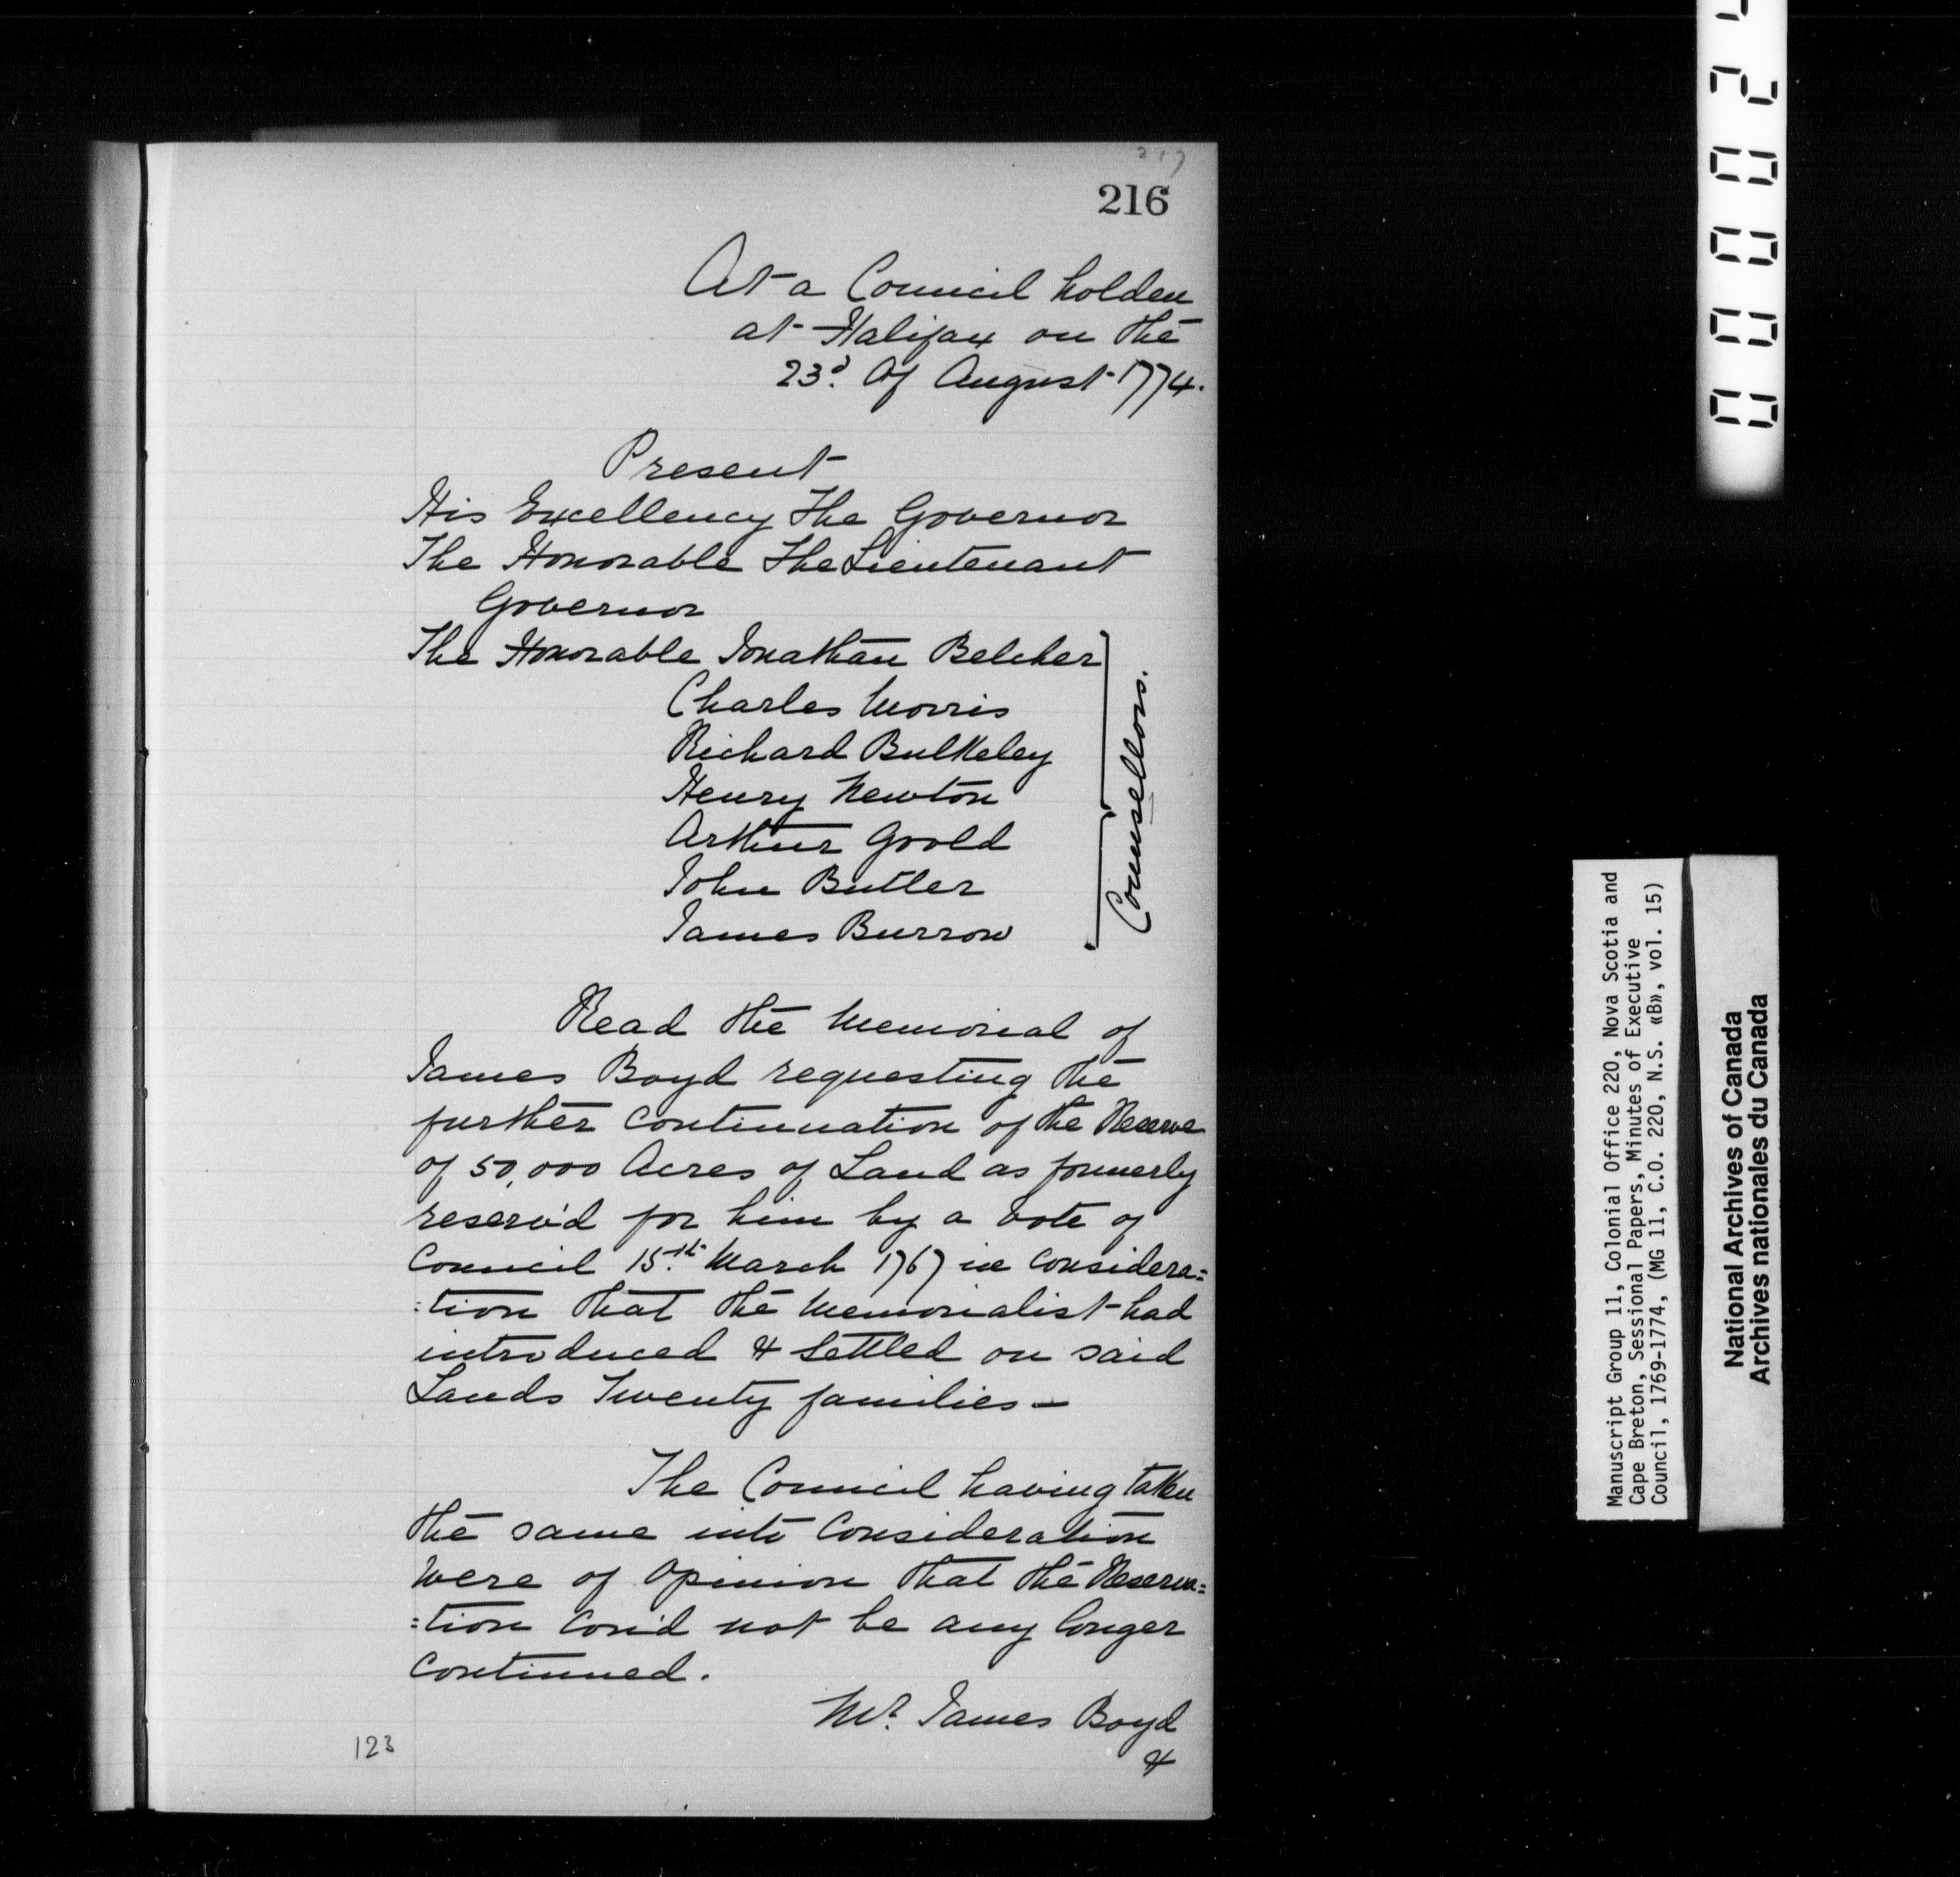 217
216
At a Council holden
at Halifax on the
23d. Of August 1774.
Present
His Excellency The Governor
The Honorable The Lieutenant
Governor
The Honorable Jonathan Belcher
Charles Morris
Richard Bulkeley
Henry Newton
Arthur Goold
John Butler
James Burrow
Counsellors.
Read the Memorial of
James Boyd requesting the
further Continuation of the Reserve
of 50,000 Acres of Land as formerly
reserv'd for him by a Vote of
Council 15th. March 1767 in Considera=
=tion that the Memorialist had
introduced & Settled on said
Lands Twenty families —
The Council having taken
the same into Consideration
were of Opinion that the Reserva=
=tion Cou'd not be any longer
Continued.
Mr. James Boyd
&
123
0 0 0 0 2
Manuscript Group 11, Colonial Office 220, Nova Scotia and
Cape Breton, Sessional Papers, Minutes of Executive
Council, 1769-1774, (MG 11, C.O. 220, N.S. «B», vol. 15)
National Archives of Canada
Archives nationales du Canada